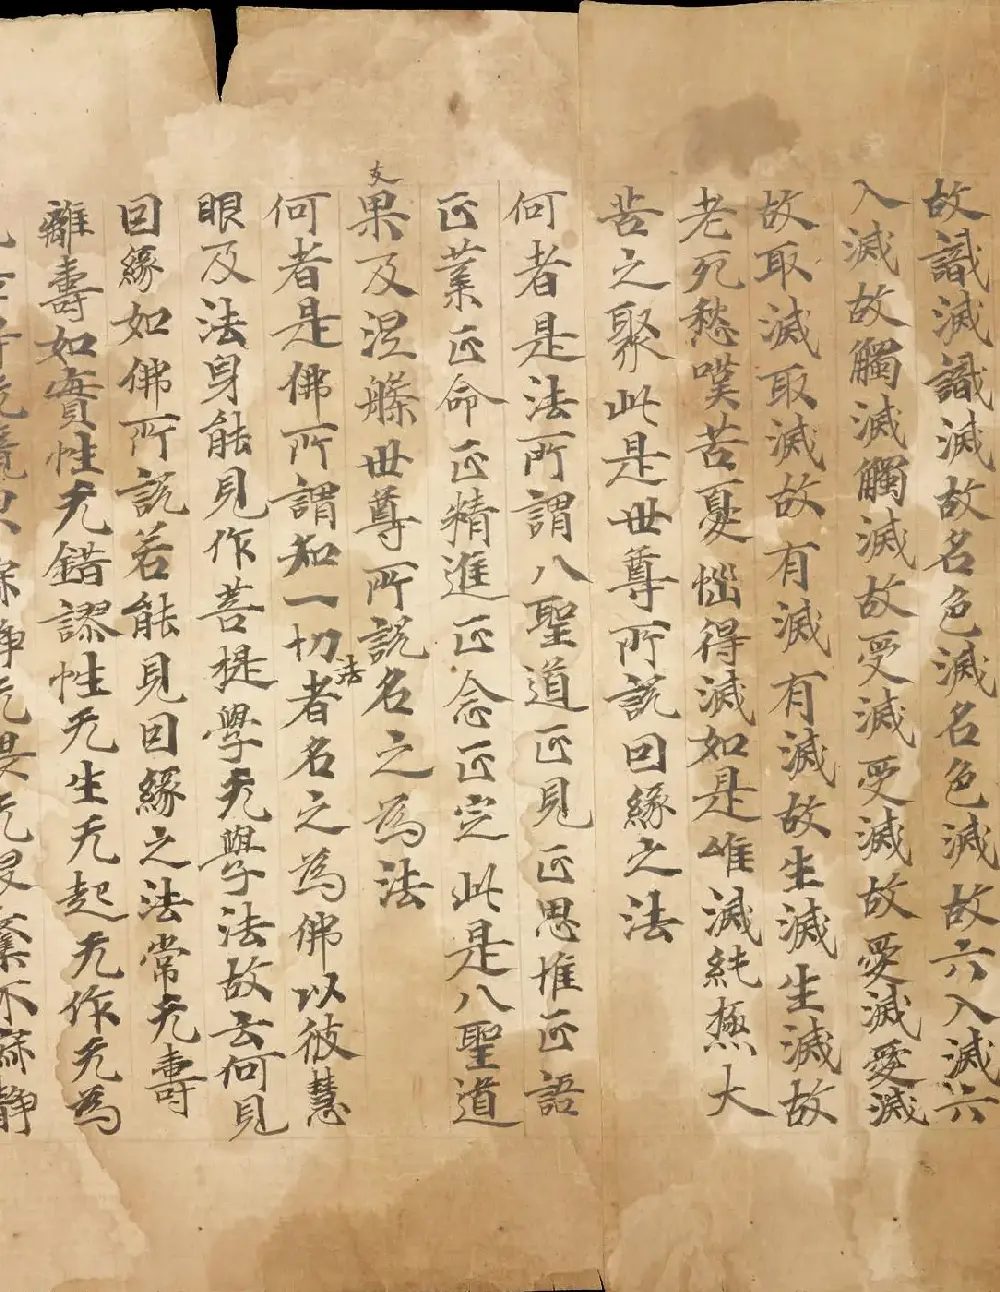 故識滅識滅故名色滅名色滅故六入滅六
入滅故觸滅觸滅故受滅受滅故愛滅愛滅
故取滅取滅故有滅有滅故生滅生滅故
老死愁嘆苦憂惱得滅如是唯滅純極大
苦之聚此是世尊所說因緣之法
何者是法所謂八聖道正見正思惟正語
正業正命正精進正念正定此是八聖道
支果及涅槃世尊所說名之為法
何者是佛所謂知一切法者名之為佛以彼慧
眼及法身能見作菩提學无學法故云何見
因緣如佛所說若能見因緣之法常无壽
離壽如實性无錯謬性无生无起无作无為
寂靜无畏无侵奪不寂靜